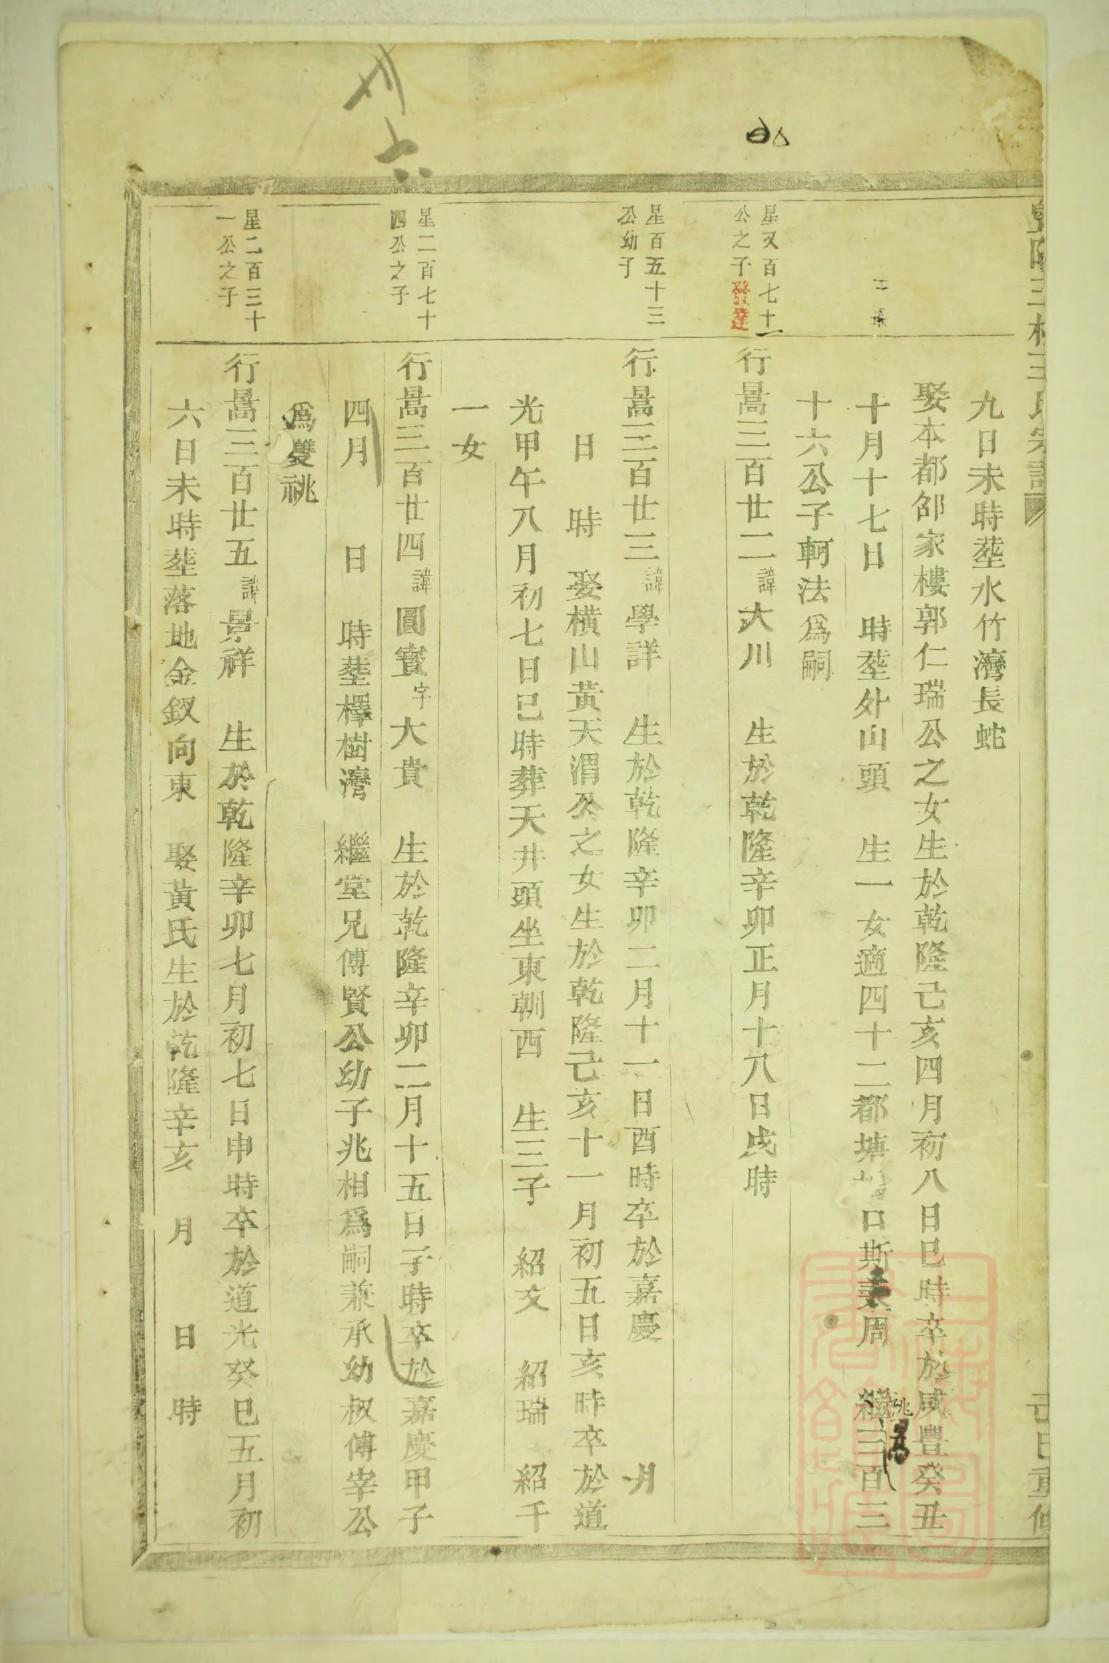 九日未時塟水竹灣長蛇
娶本都郃家樓郭仁瑞公之女生於乾隆己亥四月初八日巳時卒於咸豊癸丑
十月十七日 時塟外山頭 生一女適四十二都塘口斯周 繼三百三
十六公子軻法為嗣
星又百七十一
公之子發達
行暠三百廿二諱大川 生於乾隆辛卯正月十八日戌時
星百五十三
公幼子
行暠三百廿三諱學詳 生於乾隆辛卯二月十一日酉時卒於嘉慶 月
日 時 娶橫山黃天渭公之女生於乾隆己亥十一月初五日亥時卒於道
光甲午八月初七日巳時葬天井頭坐東朝西 生三子 紹文 紹瑞 紹千
一女
星二百七十
四公之子
行暠三百廿四諱圓寳字大貴 生於乾隆辛卯二月十五日子時卒於嘉慶甲子
四月 日 時塟檡樹灣 繼堂兄傅賢公幼子兆相為嗣兼承幼叔傅宰公
為雙祧
星二百三十
一公之子
行暠三百廿五諱景祥 生於乾隆辛卯七月初七日申時卒於道光癸巳五月初
六日未時塟落地金釵向東 娶黃氏生於乾隆辛亥 月 日 時